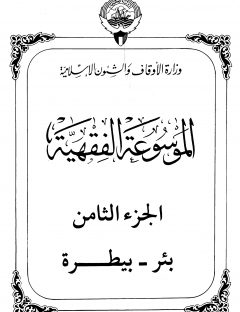 وزارة الأوقاف والشئون الإسلامية
الموسوعة الفقهية
الجزء الثامن
بئر - بيطرة